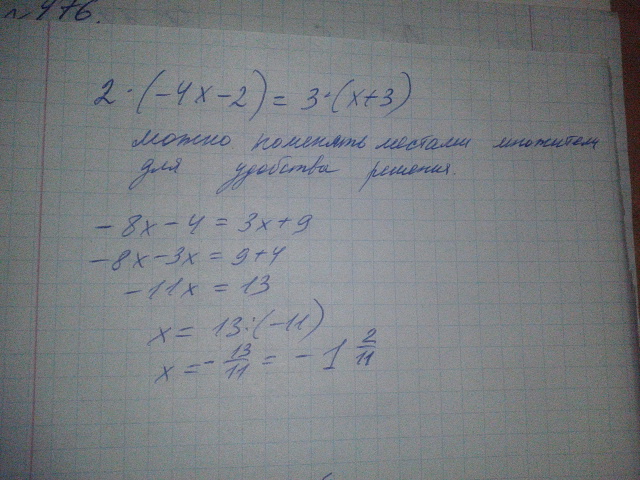 № 476.
2·(-4x-2) = 3·(x+3)
можно поменять местами множители
для удобства решения.
-8x-4 = 3x+9
-8x-3x = 9+4
-11x = 13
x = 13:(-11)
x = -13/11 = -1 2/11